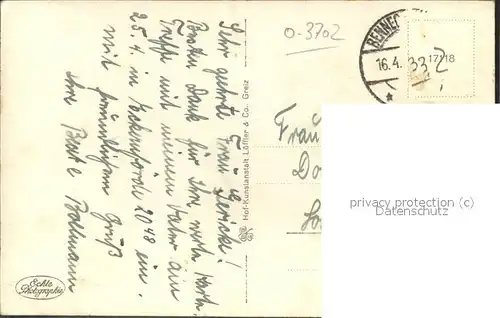 0-3702
BERNEC
16.4. 33 2
17118
Sehr geehrte Frau
Besten Dank für Ihre werte Karte.
Treffe mit meinem Vater am
25.4. in Eckernförde 20⁴⁸ ein.
Mit freundlichem Gruß
Ihre
Frau
Do
Hof-Kunstanstalt Löffler & Co., Greiz
Echte
Photographie
privacy protection
Datenschutz